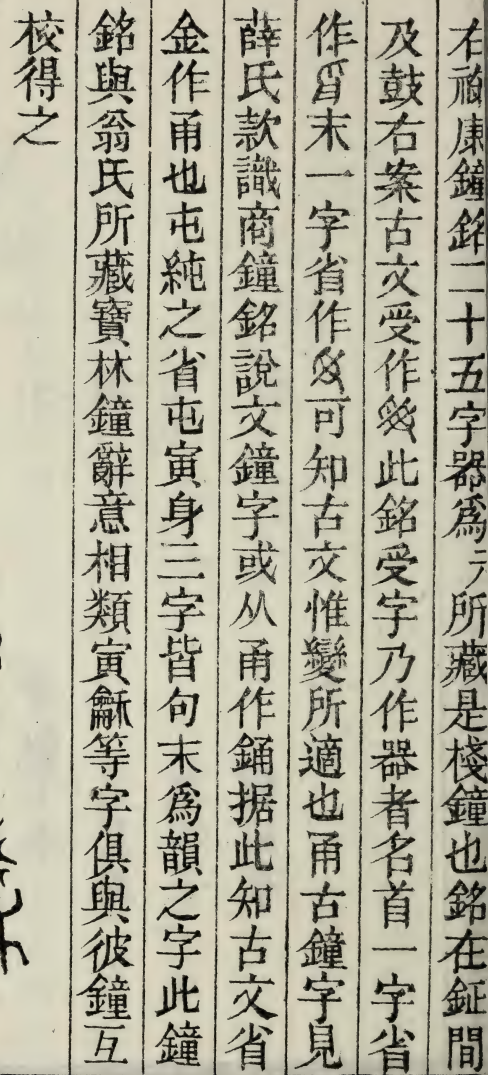 右䘵康鐘銘二十五字器爲元所藏是棧鐘也銘在鉦間
及鼓右案古文受作此銘受字乃作器者名首一字省
作末一字省作可知古文惟變所適也甬古鐘字見
薛氏款識商鐘銘說文鐘字或从甬作銿据此知古文省
金作甬也屯純之省屯寅身三字皆句末爲韻之字此鐘
銘與翁氏所藏寶林鐘辭意相類寅龢等字俱與彼鐘互
校得之